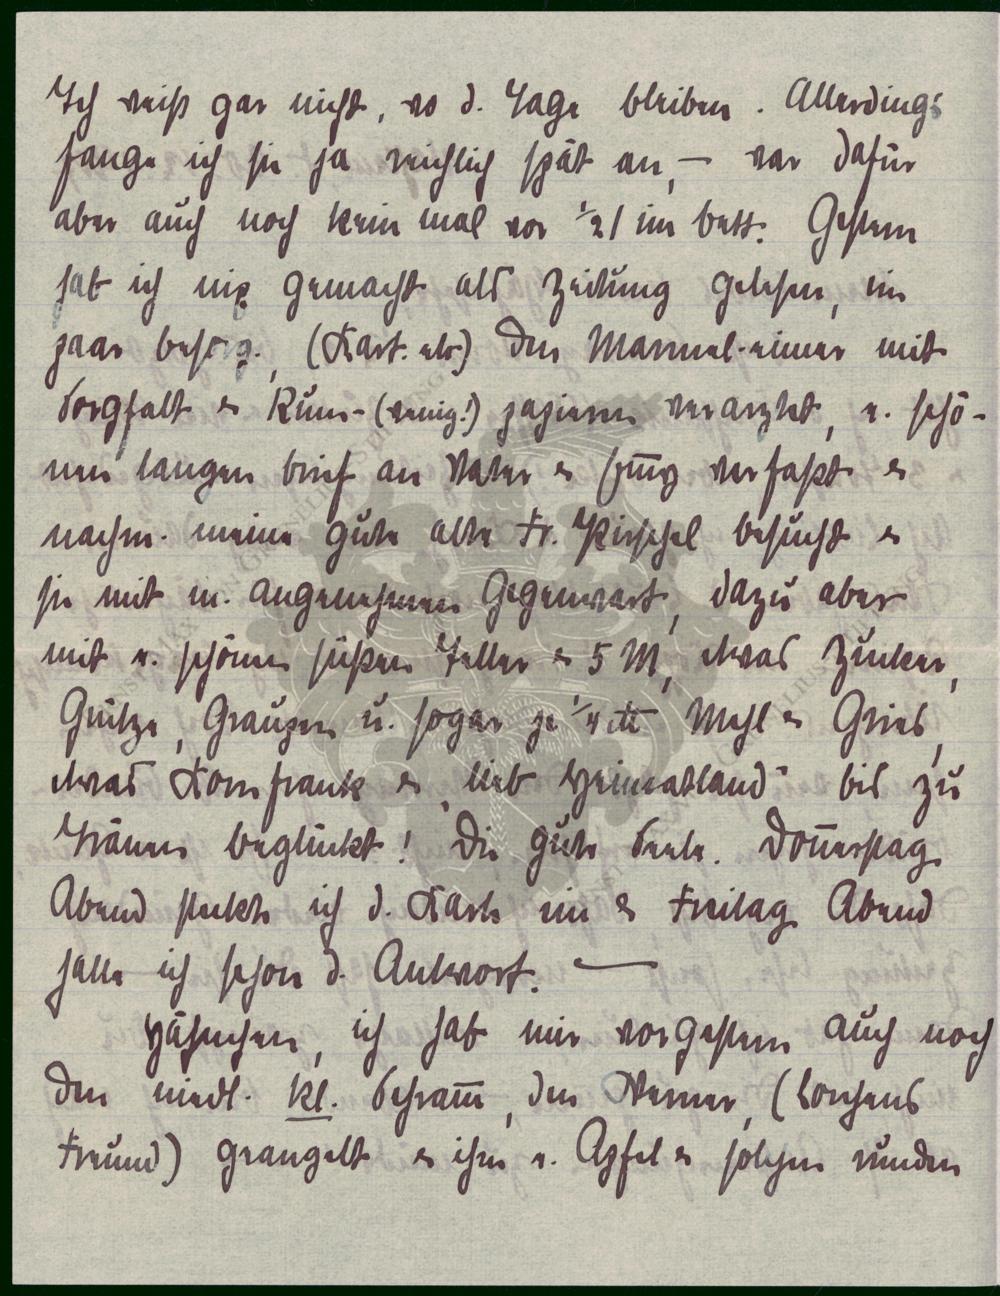 Ich weiß gar nicht, wo d. Tage bleiben. Allerdings
fange ich sie ja reichlich spät an, — war dafür
aber auch noch kein mal vor ½1 im Bett. Gestern
hab ich nix gemacht als Zeitung gelesen, ein
paar besorg., (Kart. etc) den Marmel-eimer mit
Sorgfalt & Rum-(wenig!) papieren verarztet, e. schö-
nen langen Brief an Vater & verfaßt &
nachm. meine gute alte Fr. besucht &
sie mit m. angenehmen Gegenwart, dazu aber
mit e. schönen süßen Teller & 5 M, etwas Zucker,
Grütze, Graupen u. sogar je ¼ ℔ Mehl & Gries,
etwas Kornfrank & „lieb Heimatland" bis zu
Tränen beglückt! Die gute Seele. Donnerstag
Abend steckte ich d. Karte ein & Freitag Abend
hatte ich schon d. Antwort. —
Häschen, ich hab mir vorgestern auch noch
den niedl. kl. den Werner, (Lorchens
Freund) geangelt & ihm e. Apfel & solchen runden